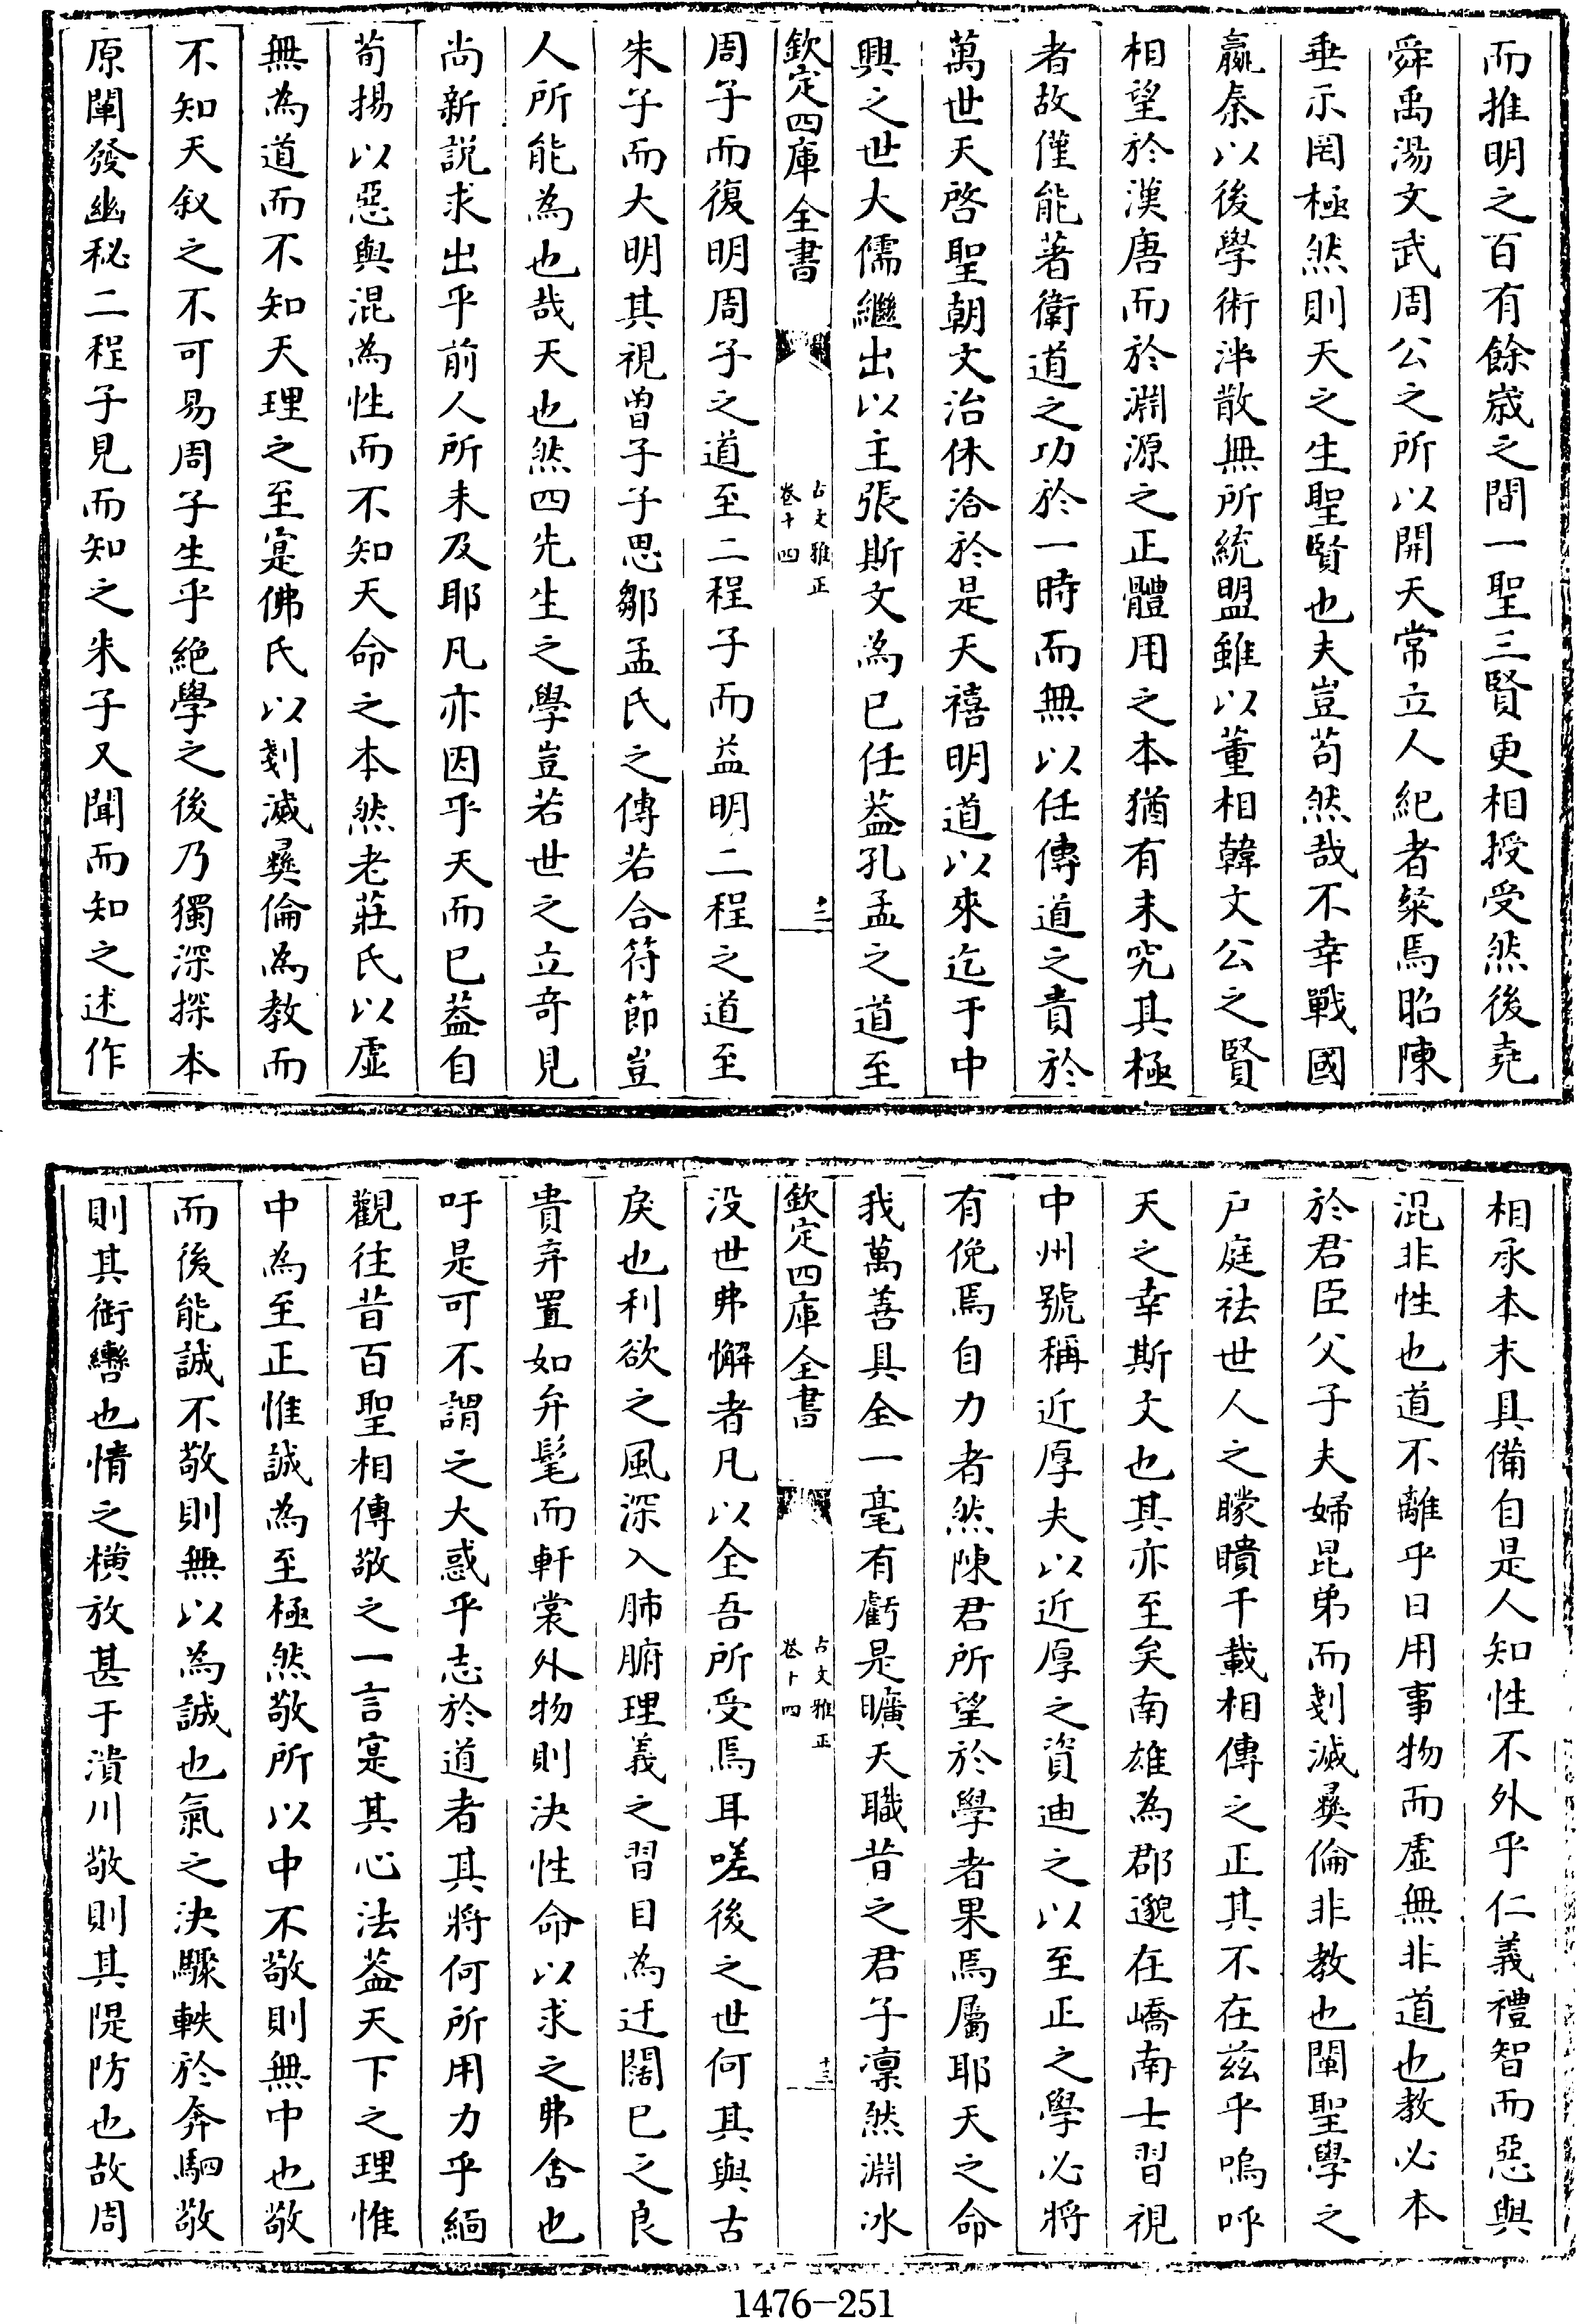 而推明之百有餘歳之間一聖三賢更相授受然後堯
舜禹湯文武周公之所以開天常立人紀者粲焉昭陳
垂示罔極然則天之生聖賢也夫豈苟然哉不幸戰國
嬴秦以後學術泮散無所統盟雖以董相韓文公之賢
相望於漢唐而於淵源之正體用之本猶有未究其極
者故僅能著衛道之功於一時而無以任傳道之責於
萬世天啓聖朝文治休洽於是天禧明道以來迄于中
興之世大儒繼出以主張斯文為已任葢孔孟之道至
欽定四庫全書
古文雅正
卷十四
十二
周子而復明周子之道至二程子而益明二程之道至
朱子而大明其視曽子子思鄒孟氏之傳若合符節豈
人所能為也哉天也然四先生之學豈若世之立竒見
尚新説求出乎前人所未及耶凡亦因乎天而已葢自
荀揚以惡與混為性而不知天命之本然老莊氏以虛
無為道而不知天理之至寔佛氏以剗滅彝倫為教而
不知天叙之不可易周子生乎絶學之後乃獨深探本
原闡發幽秘二程子見而知之朱子又聞而知之述作
相承本末具備自是人知性不外乎仁義禮智而惡與
混非性也道不離乎日用事物而虛無非道也教必本
於君臣父子夫婦昆弟而剗滅彝倫非教也闡聖學之
户庭祛世人之矇瞶千載相傳之正其不在兹乎嗚呼
天之幸斯文也其亦至矣南雄為郡邈在嶠南士習視
中州號稱近厚夫以近厚之資迪之以至正之學必將
有俛焉自力者然陳君所望於學者果焉屬耶天之命
我萬善具全一毫有虧是曠天職昔之君子凛然淵冰
欽定四庫全書
古文雅正
卷十四
十三
沒世弗懈者凡以全吾所受焉耳嗟後之世何其與古
戾也利欲之風深入肺腑理義之習目為迂闊已之良
貴弃置如弁髦而軒裳外物則決性命以求之弗舍也
吁是可不謂之大惑乎志於道者其將何所用力乎緬
觀往昔百聖相傳敬之一言寔其心法葢天下之理惟
中為至正惟誠為至極然敬所以中不敬則無中也敬
而後能誠不敬則無以為誠也氣之決驟軼於奔駟敬
則其銜轡也情之橫放甚于潰川敬則其隄防也故周
1476-251